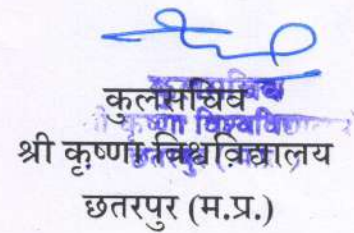 कुलसचिव
श्री कृष्णा विश्वविद्यालय
छतरपुर (म.प्र.)